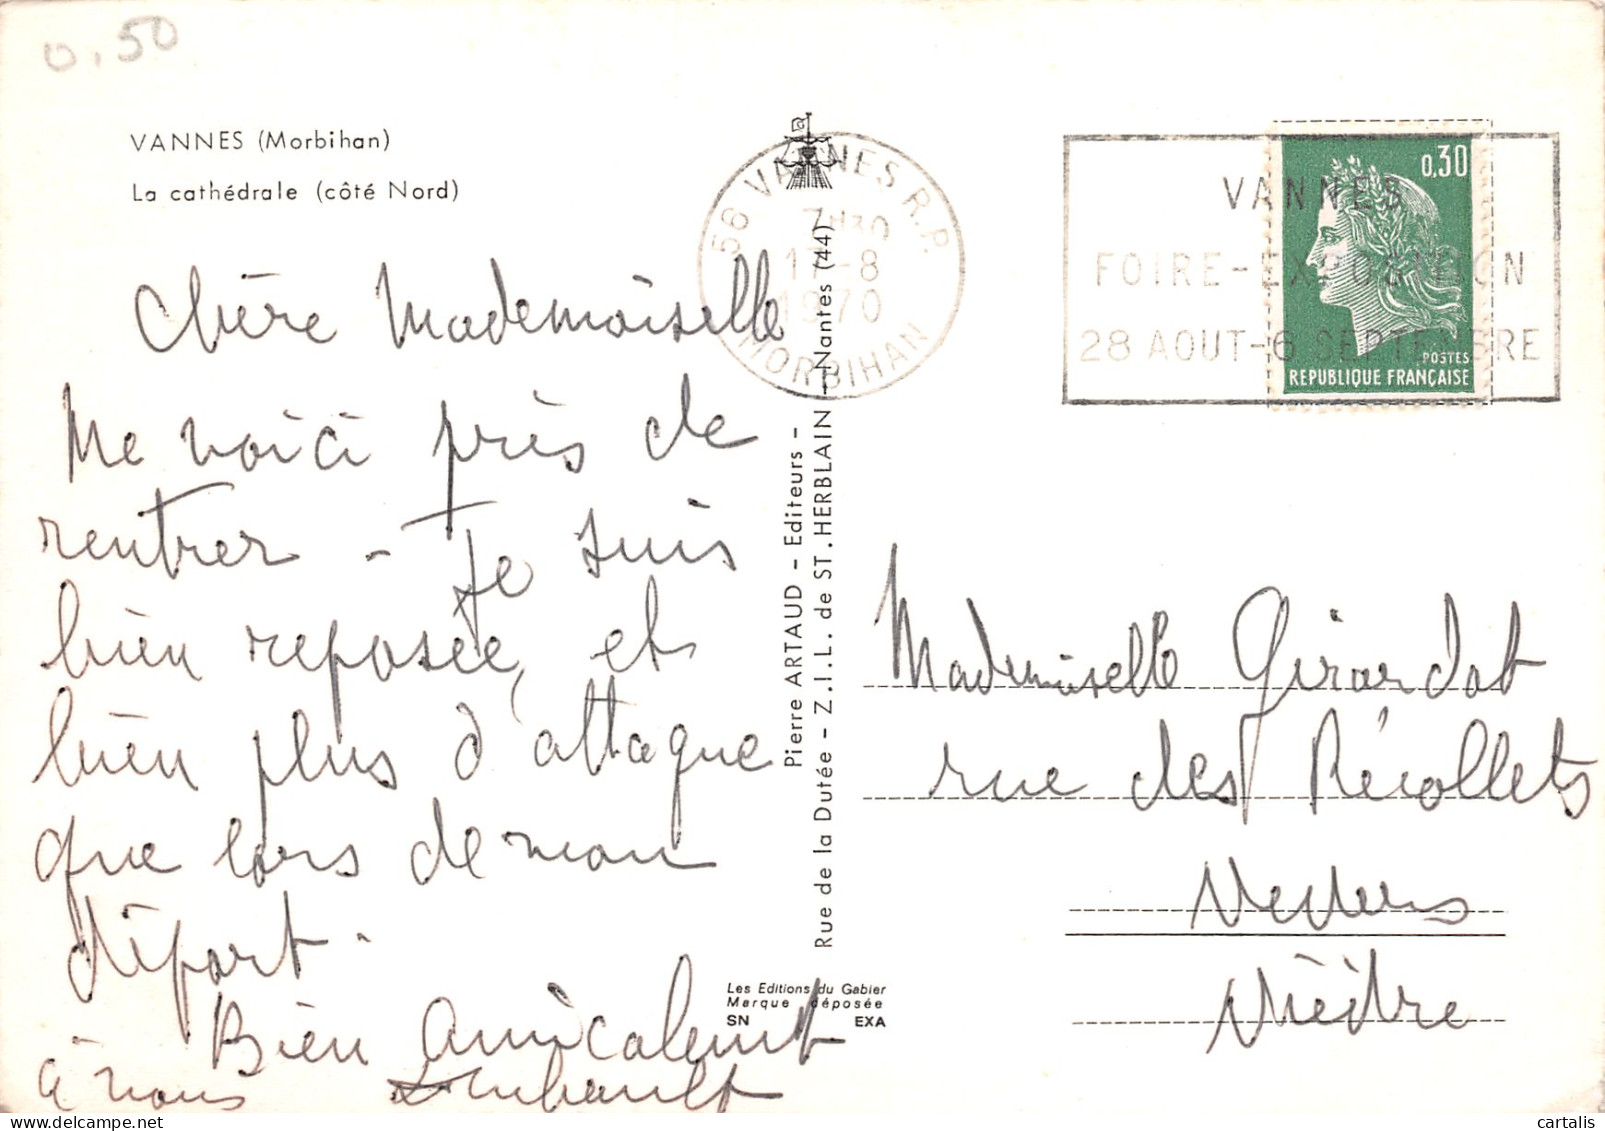 0.50
VANNES (Morbihan)
La cathédrale (côté Nord)
56 VANNES R.P.
7H30
17-8
1970
MORBIHAN
VANNES
FOIRE-EXPOSITION
28 AOUT-6 SEPTEMBRE
0,30
POSTES
REPUBLIQUE FRANÇAISE
Chère Mademoiselle
Me voici près de
rentrer - Je suis
bien reposée, et
bien plus d'attaque
que lors de mon
départ -
Bien amicalement
à vous
Pierre ARTAUD - Editeurs -
Rue de la Dutée - Z.I.L. de ST. HERBLAIN - Nantes (44)
Les Editions du Gabier
Marque déposée
SN EXA
Mademoiselle Girardot
rue des Récollets
Nevers
Nièvre
cartalis